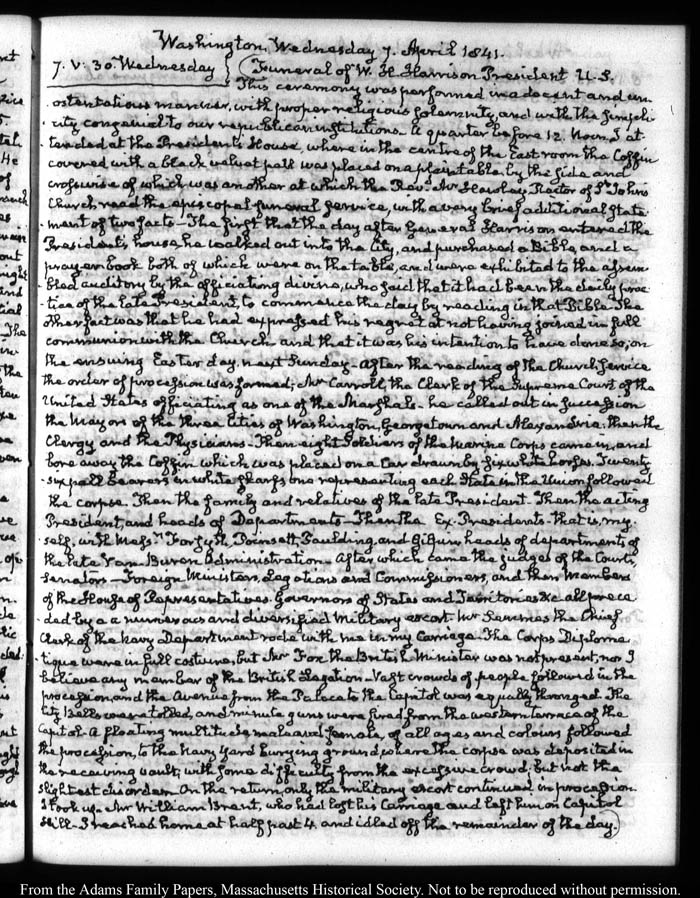 Washington, Wednesday 7. April 1841.
7. V: 30. Wednesday (Funeral of W. H. Harrison President U.S.
This ceremony was performed in a decent and un-
ostentatious manner, with proper religious solemnity, and with the simpli-
city congenial to our republican institutions. A quarter before 12. Noon, I at-
tended at the President's House, where in the centre of the East room the Coffin
covered with a black velvet pall was placed on a plain table by the side and
crosswise of which was another at which the Rev.d Mr Hawley Rector of St John's
Church, read the episcopal funeral service, with a very brief additional state-
ment of two facts— The first that the day after General Harrison entered the
President's house, he walked out into the City, and purchased a Bible, and a
prayer book both of which were on the table, and were exhibited to the assem-
bled auditory by the officiating divine, who said that it had been the daily prac-
tice of the late President, to commence the day by reading in that Bible. The
other fact was that he had expressed his regret at not having joined in full
communion with the Church and that it was his intention to have done so, on
the ensuing Easter day, next Sunday— After the reading of the Church Service
the order of procession was formed; Mr Carroll, the Clerk of the Supreme Court of the
United States officiating as one of the Marshals— he called out in succession
the Mayors of the three Cities of Washington, Georgetown and Alexandria. then the
Clergy and the Physicians— Then eight Soldiers of the Marine Corps came in, and
bore away the Coffin which was placed on a Car drawn by six white horses. Twenty-
six pall bearers in white scarfs one representing each State in the Union followed
the corpse. Then the family and relatives of the late President. Then the acting
President, and heads of Departments— Then the Ex-Presidents— that is, my-
self, with Mess.rs Forsyth, Poinsett, Paulding, and Gilpin heads of departments, of
the late Van Buren Administration— After which came the judges of the Courts,
Senators— Foreign Ministers, Legations and Commissioners, and then Members
of the House of Representatives. Governors of States and Territories &c all prece-
ded by a a numerous and diversified Military escort. Mr the Chief
Clerk of the Navy Department rode with me in my Carriage— The Corps Diploma-
tique were in full costume, but Mr Fox the British Minister was not present, nor I
believe any member of the British Legation— Vast crowds of people followed in the
procession, and the Avenue from the Palace to the Capitol was equally thronged. The
City Bells were tolled, and minute guns were fired from the western terrace of the
Capitol. A floating multitude, male and female, of all ages and colours followed
the procession, to the Navy Yard burying ground, where the corpse was deposited in
the receiving vault; with some difficulty from the excessive crowd; but not the
slightest disorder. On the return, only the military escort continued in procession.
I took up Mr William Brent, who had lost his Carriage and left him on Capitol
Hill— I reached home at half past 4. and idled off the remainder of the day.)
From the Adams Family Papers, Massachusetts Historical Society. Not to be reproduced without permission.